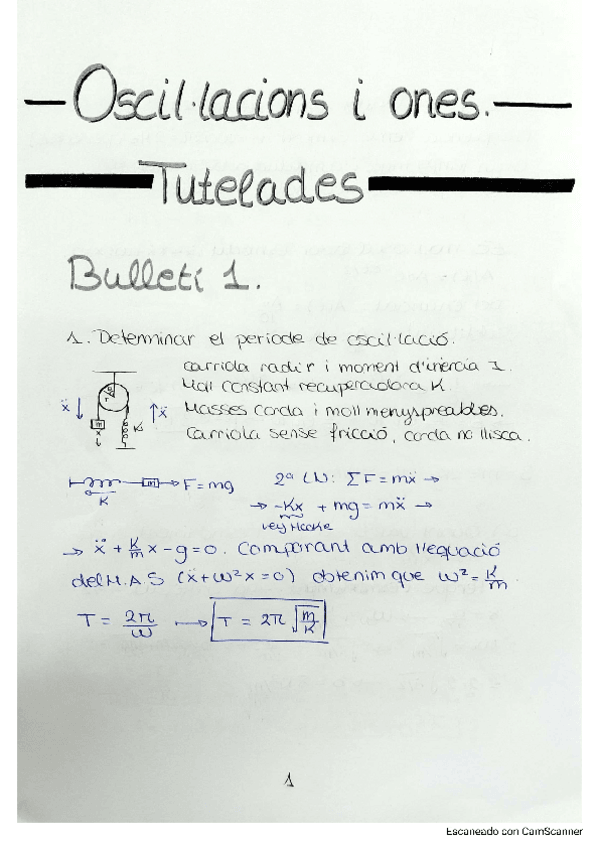 Oscil·lacions i ones.
Tutelades
Bulletí 1.
1. Determinar el període de oscil·lació.
Carriola radi r i moment d'inèrcia I.
Moll constant recuperadora K.
Masses corda i moll menyspreables.
Carriola sense fricció, corda no llisca.
ẍ ↓ m x r K ↑ ẍ
K m → F = mg 2ª LN: ΣF = mẍ →
→ -Kx + mg = mẍ →
Ley Hooke
→ ẍ + K/m x - g = 0. Comparant amb l'equació
del M.A.S (ẍ + ω²x = 0) obtenim que ω² = K/m
T = 2π/ω → T = 2π √(m/K)
1
Escaneado con CamScanner